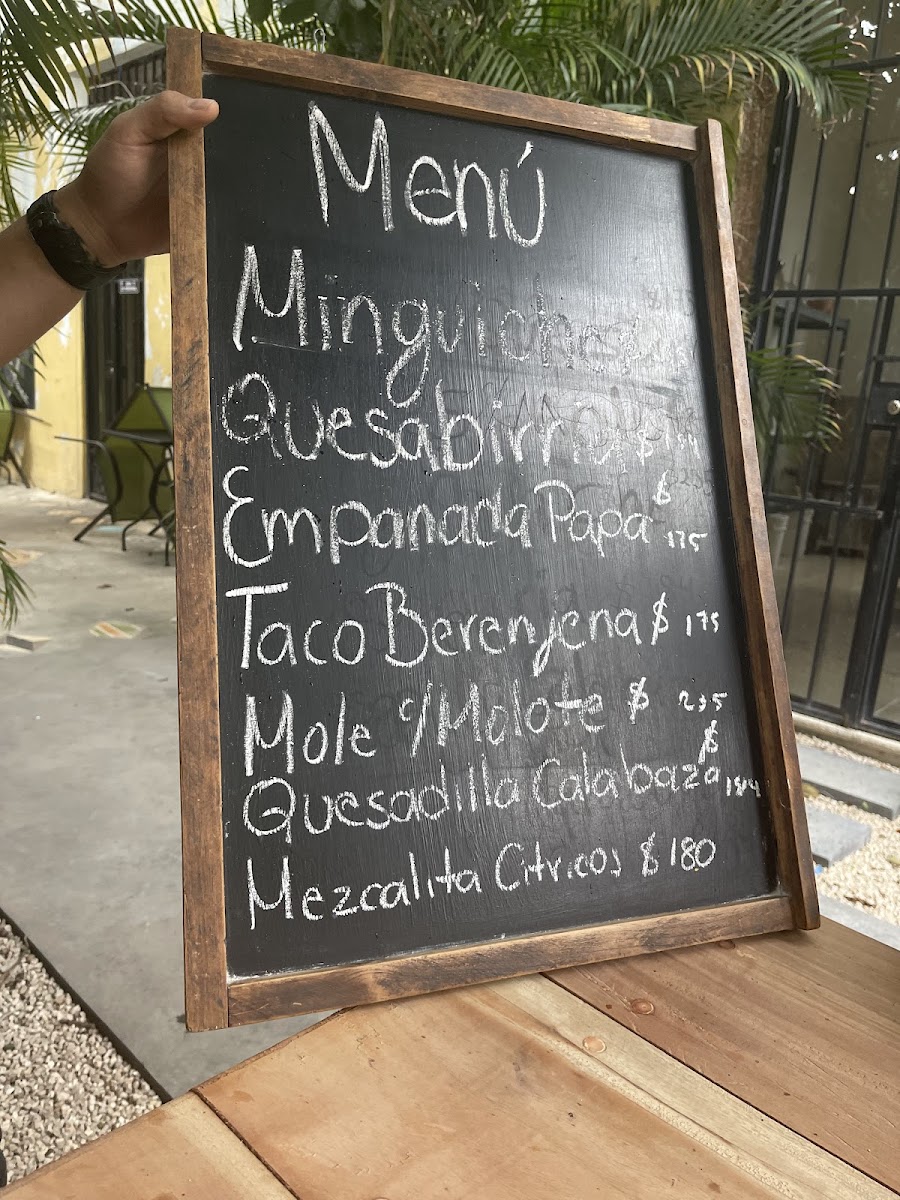 Menú
Minguiches
Quesabirria $184
Empanada Papa $175
Taco Berenjena $ 175
Mole c/Molote $ 235
Quesadilla Calabaza $184
Mezcalita Citricos $180